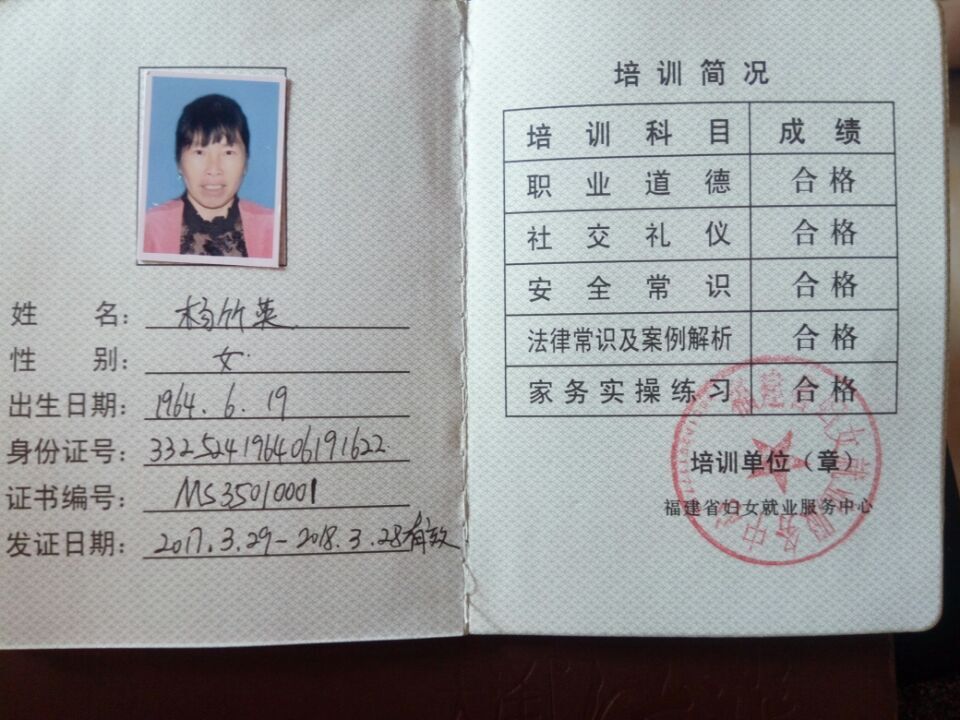 姓名：杨竹英
性别：女
出生日期：1964.6.19
身份证号：332524196406191622
证书编号：MS35010001
发证日期：2017.3.29-2018.3.28有效
培训简况
培训科目 成绩
职业道德 合格
社交礼仪 合格
安全常识 合格
法律常识及案例解析 合格
家务实操练习 合格
培训单位（章）
福建省妇女就业服务中心